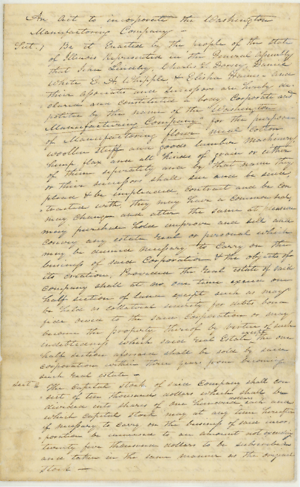 An act to incorporate the Washington
Manufacturing Company —
Sect. 1 Be it Enacted by the people of the state
of Illinois Represented in the General Assembly
that
White D. A. Whipple & Elisha and
their associates and successors are hereby
and constituted a body Corporate and
politic by the name of the "Washington
Manufacturing Company" for the purpose
of Manufacturing flour meal cotton
woollen stuffs iron goods lumber Machinery
hemp flax and all kinds of grain or either
of them seperately and by that name they
& their successors shall sue and be sued,
plead & be impleaded, contract and be con-
tracted with, they may have a common seal
may change and alter the same at pleasure
may purchase hold improve and sell and
convey any estate real or personal which
may be deemed necessary to carry on the
business of said Corporation & the objects of
its creation, Provided the real estate of said
Company shall at no one time exceed one
half section of land except such as may
be held as collateral security for debts
due to the same Corporation or may
become the property thereof by virtue of such
which said real Estate over one
half section aforesaid shall be sold by said
corporation within three years from becoming
such real estate —
Sect 2 The Capital stock of said Company shall con-
sist of ten thousand dollars which shall be
divided into shares of one hundred dollars each
which capital stock may at any time hereafter
if necessary to carry on the business of said incor-
poration be increased to an amount not exceeding
twenty five thousand dollars to be subscribed
and taken in the same manner as the original
stock —